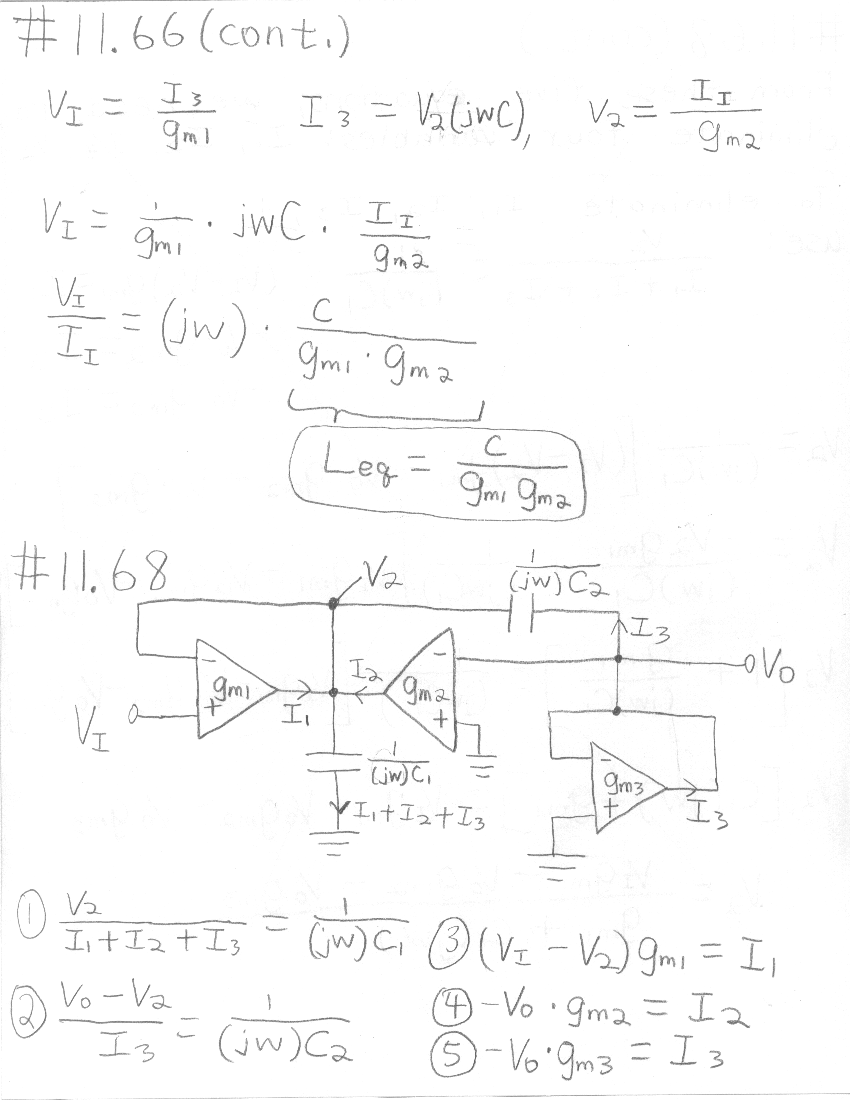 #11.66 (cont.)
V_I = I_3 / g_m1    I_3 = V_2(jwC),    V_2 = I_I / g_m2
V_I = 1 / g_m1 · jwC · I_I / g_m2
V_I / I_I = (jw) · C / (g_m1 · g_m2)
Leq = C / (g_m1 g_m2)
#11.68
V_2
1 / (jw)C_2
I_3
V_O
- g_m1 +
I_1
I_2
- g_m2 +
V_I
1 / (jw)C_1
I_1 + I_2 + I_3
- g_m3 +
I_3
① V_2 / (I_1 + I_2 + I_3) = 1 / (jw)C_1
② (V_o - V_2) / I_3 = 1 / (jw)C_2
③ (V_I - V_2) g_m1 = I_1
④ -V_o · g_m2 = I_2
⑤ -V_o · g_m3 = I_3